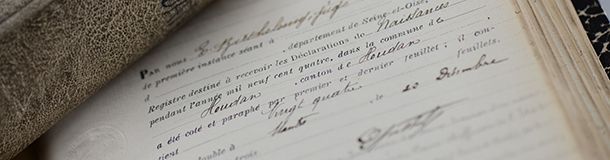 PAR nous, G. Berthelemy, juge
de première instance séant à , département de Seine-et-Oise,
Registre destiné à recevoir les Déclarations de Naissances
pendant l'année mil neuf cent quatre, dans la commune de
Houdan , canton de Houdan ; il con-
a été coté et paraphé par premier et dernier feuillet
tient vingt quatre feuillets.
double à le 20 Décembre